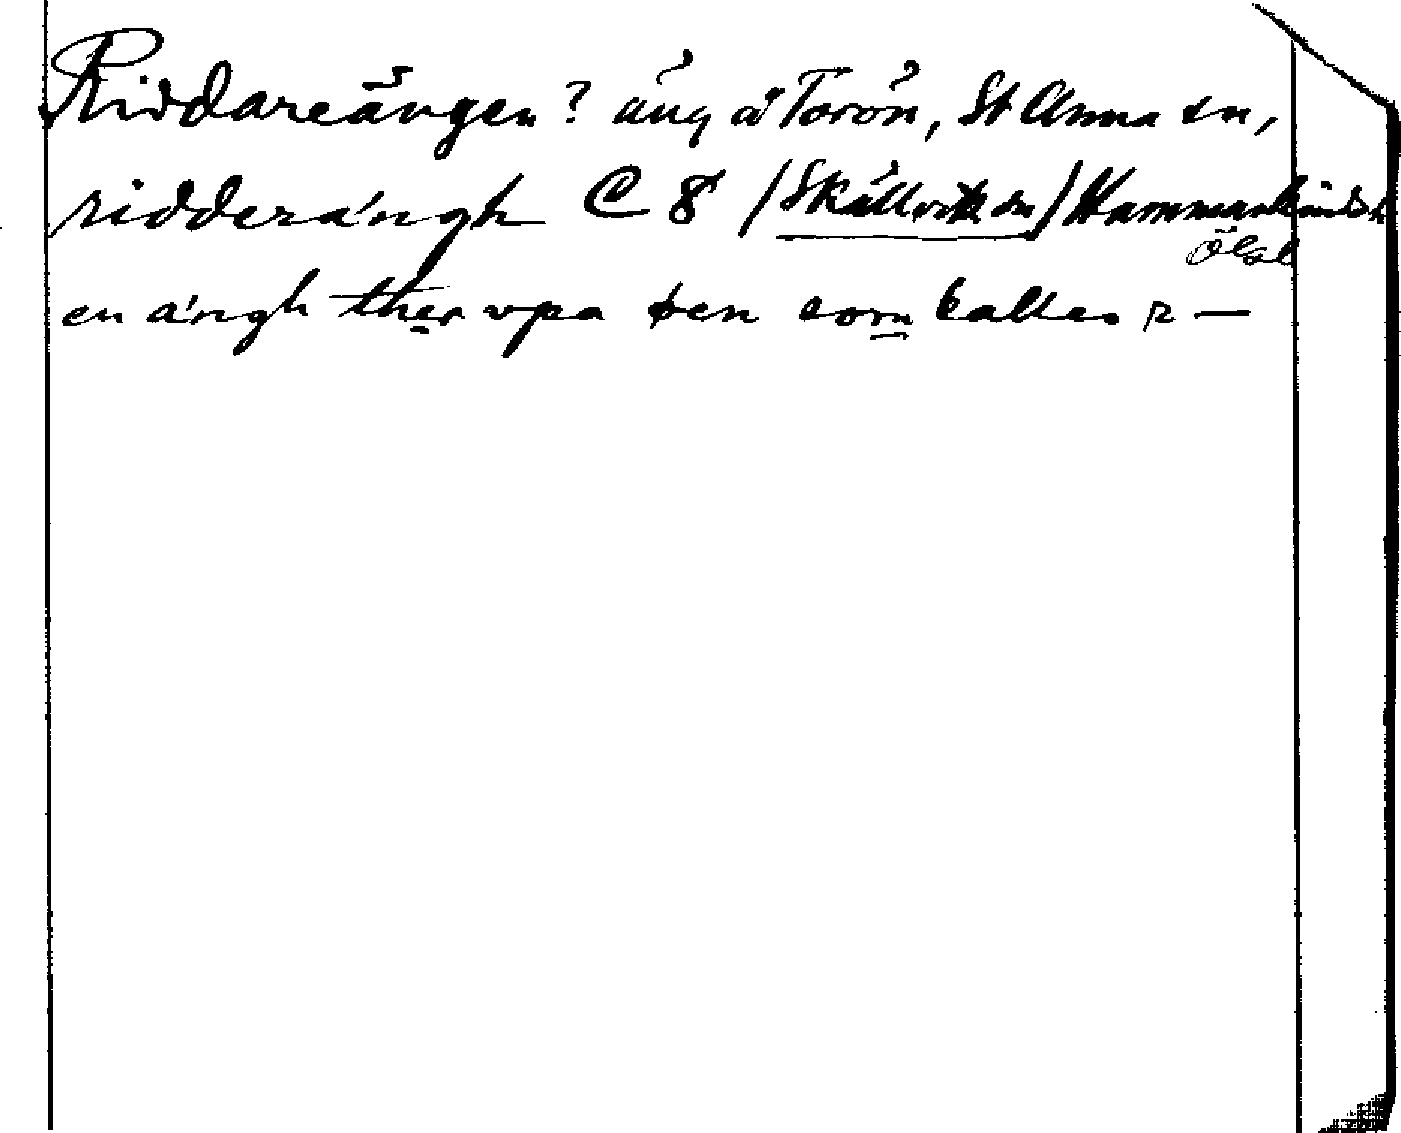 Riddareängen? äng å Torön, St Anna sn,
ridderängh C 8 (Skällvik sn) Hammarkinds h
Ögl
en ängh ther vpa þen som kalles r —